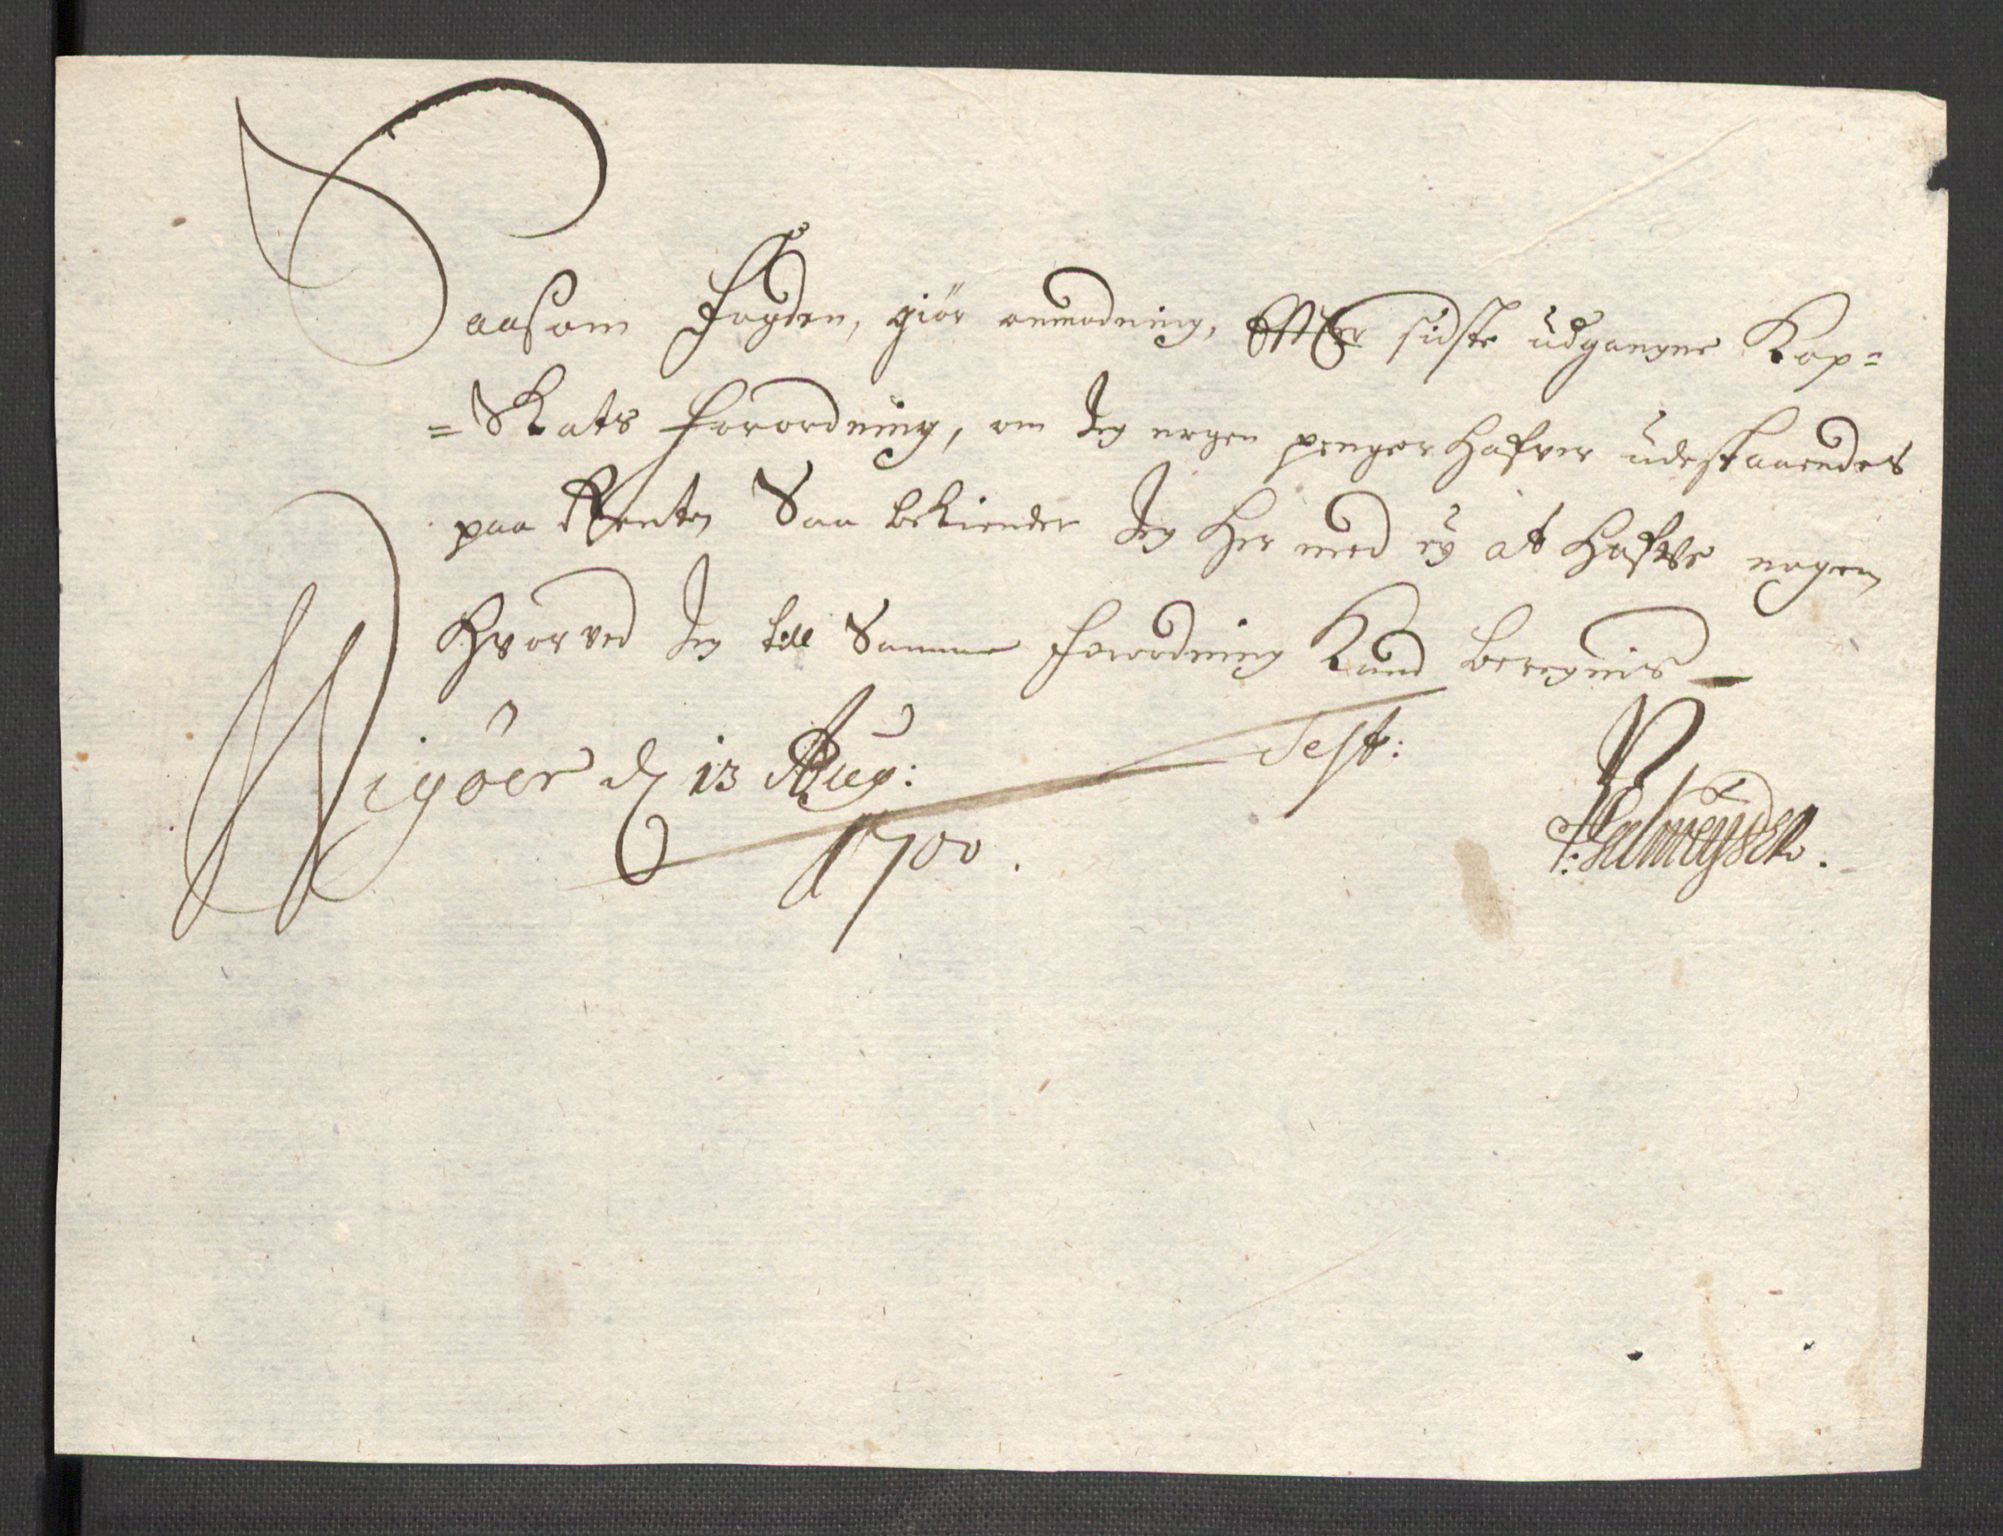 Saasom Fogden, giör anmodning, Efter sidste udgangne Kop=
=Skats forordning, om Jeg nogen penger hafver udestaaendes
paa Rente, Saa bekiender Jeg her med ey at hafve nogen
hvorved Jeg till Samme forordning Kand beregnis
Wigöer d 13 Aug: Test:
1700.